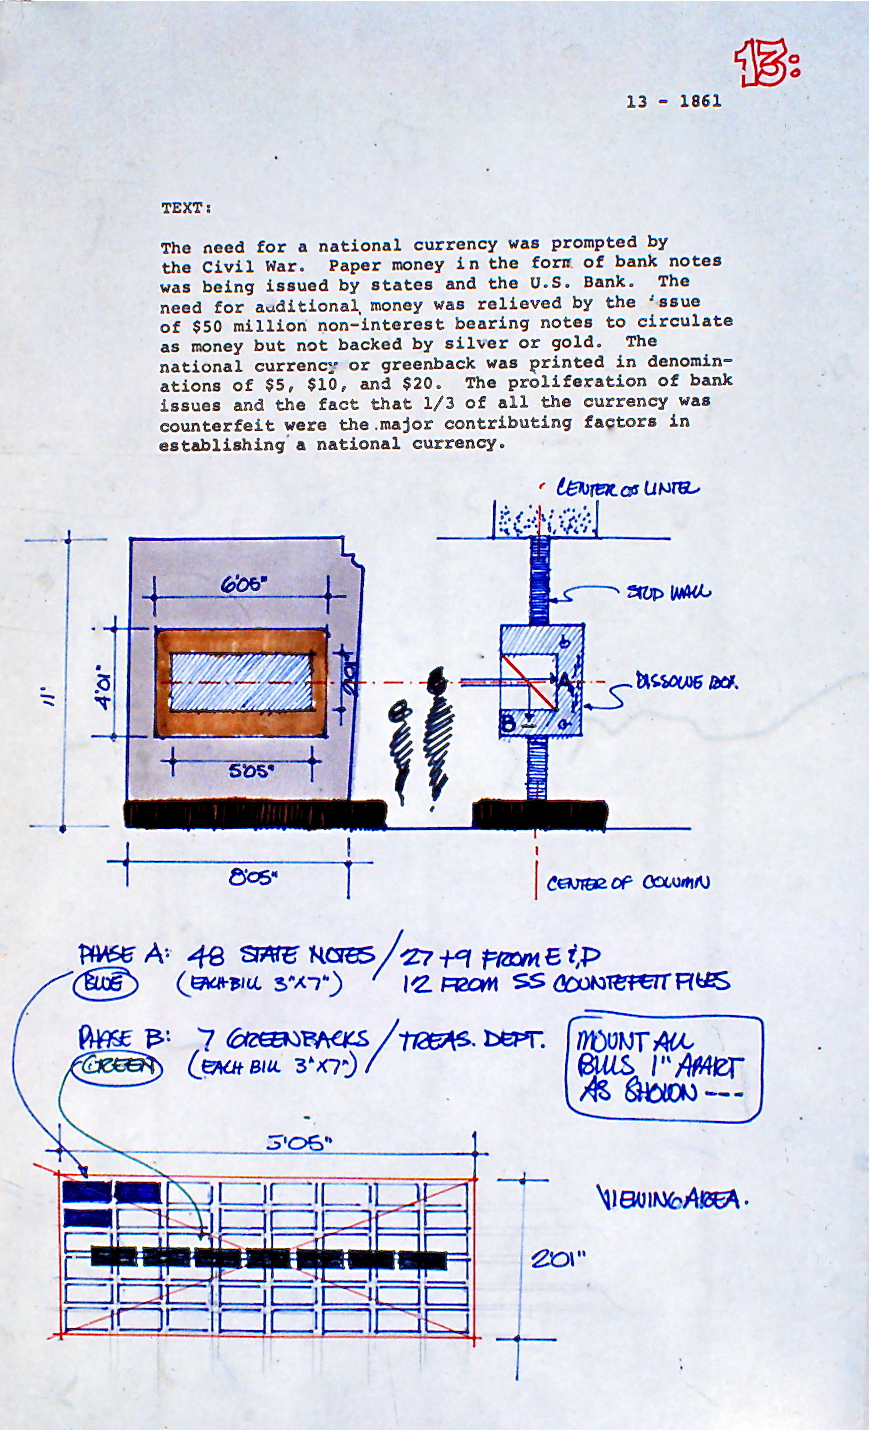 13:
13 - 1861
TEXT:
The need for a national currency was prompted by
the Civil War. Paper money in the form of bank notes
was being issued by states and the U.S. Bank. The
need for additional money was relieved by the issue
of $50 million non-interest bearing notes to circulate
as money but not backed by silver or gold. The
national currency or greenback was printed in denomin-
ations of $5, $10, and $20. The proliferation of bank
issues and the fact that 1/3 of all the currency was
counterfeit were the major contributing factors in
establishing a national currency.
CENTER OF LINTEL
6'05"
STUD WALL
b
11'
4'01"
2'01"
A
DISSOLVE BOX.
B
a
5'05"
8'05"
CENTER OF COLUMN
PHASE A: 48 STATE NOTES / 27+9 FROM E & P
BLUE (EACH BILL 3"X7") 12 FROM SS COUNTEFEIT FILES
PHASE B: 7 GREENBACKS / TREAS. DEPT.
GREEN (EACH BILL 3"X7")
MOUNT ALL
BILLS 1" APART
AS SHOWN ---
5'05"
VIEWING AREA.
2'01"